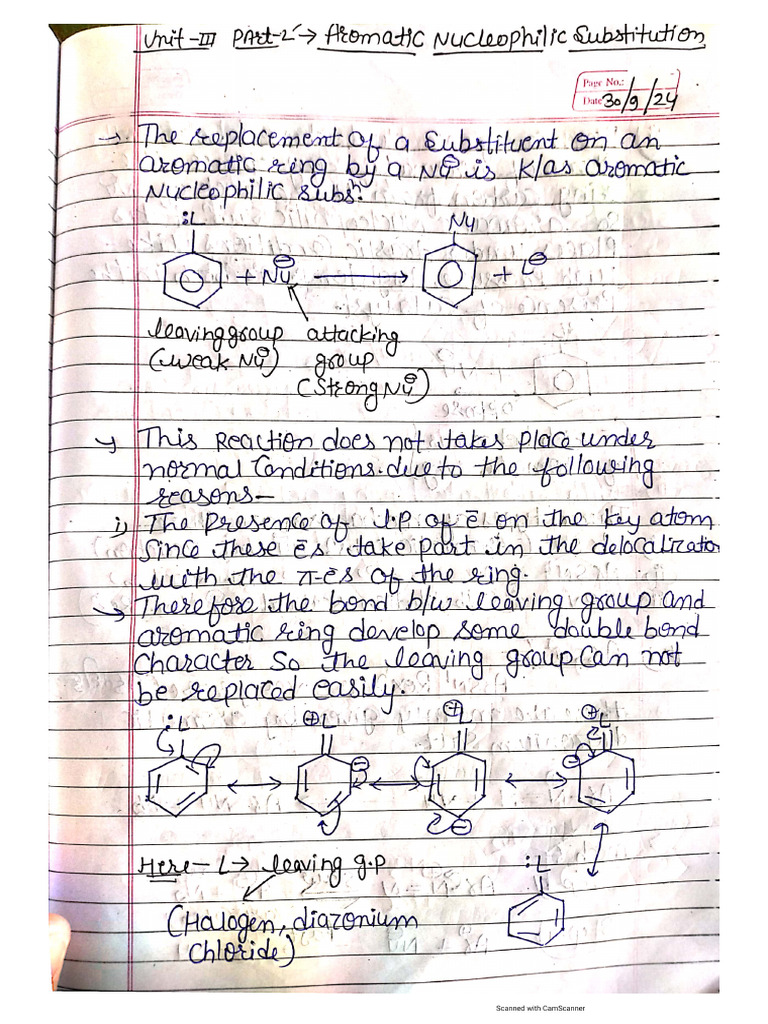 Unit-III PArt-2 → Aromatic Nucleophilic Substitution
Page No.:
Date 30/9/24
→ The replacement of a Substituent on an
aromatic ring by a Nu⊖ is K/as aromatic
Nucleophilic subsⁿ.
:L
Nu
+ Nu⊖ → + L⊖
leaving group attacking
(weak Nu⊖) group
(Strong Nu⊖)
→ This Reaction does not takes place under
normal Conditions. due to the following
reasons-
i) The Presence of l.P of ē on the key atom
Since these ēs take part in the delocalization
with the π-ēs of the ring.
→ Therefore the bond b/w leaving group and
aromatic ring develop some double bond
Character So the leaving group Can not
be replaced easily.
:L ⊕L ⊕L ⊕L
⊖ ⊖ ⊖
Here- L → leaving g.p
:L
(Halogen, diazonium
Chloride)
Scanned with CamScanner